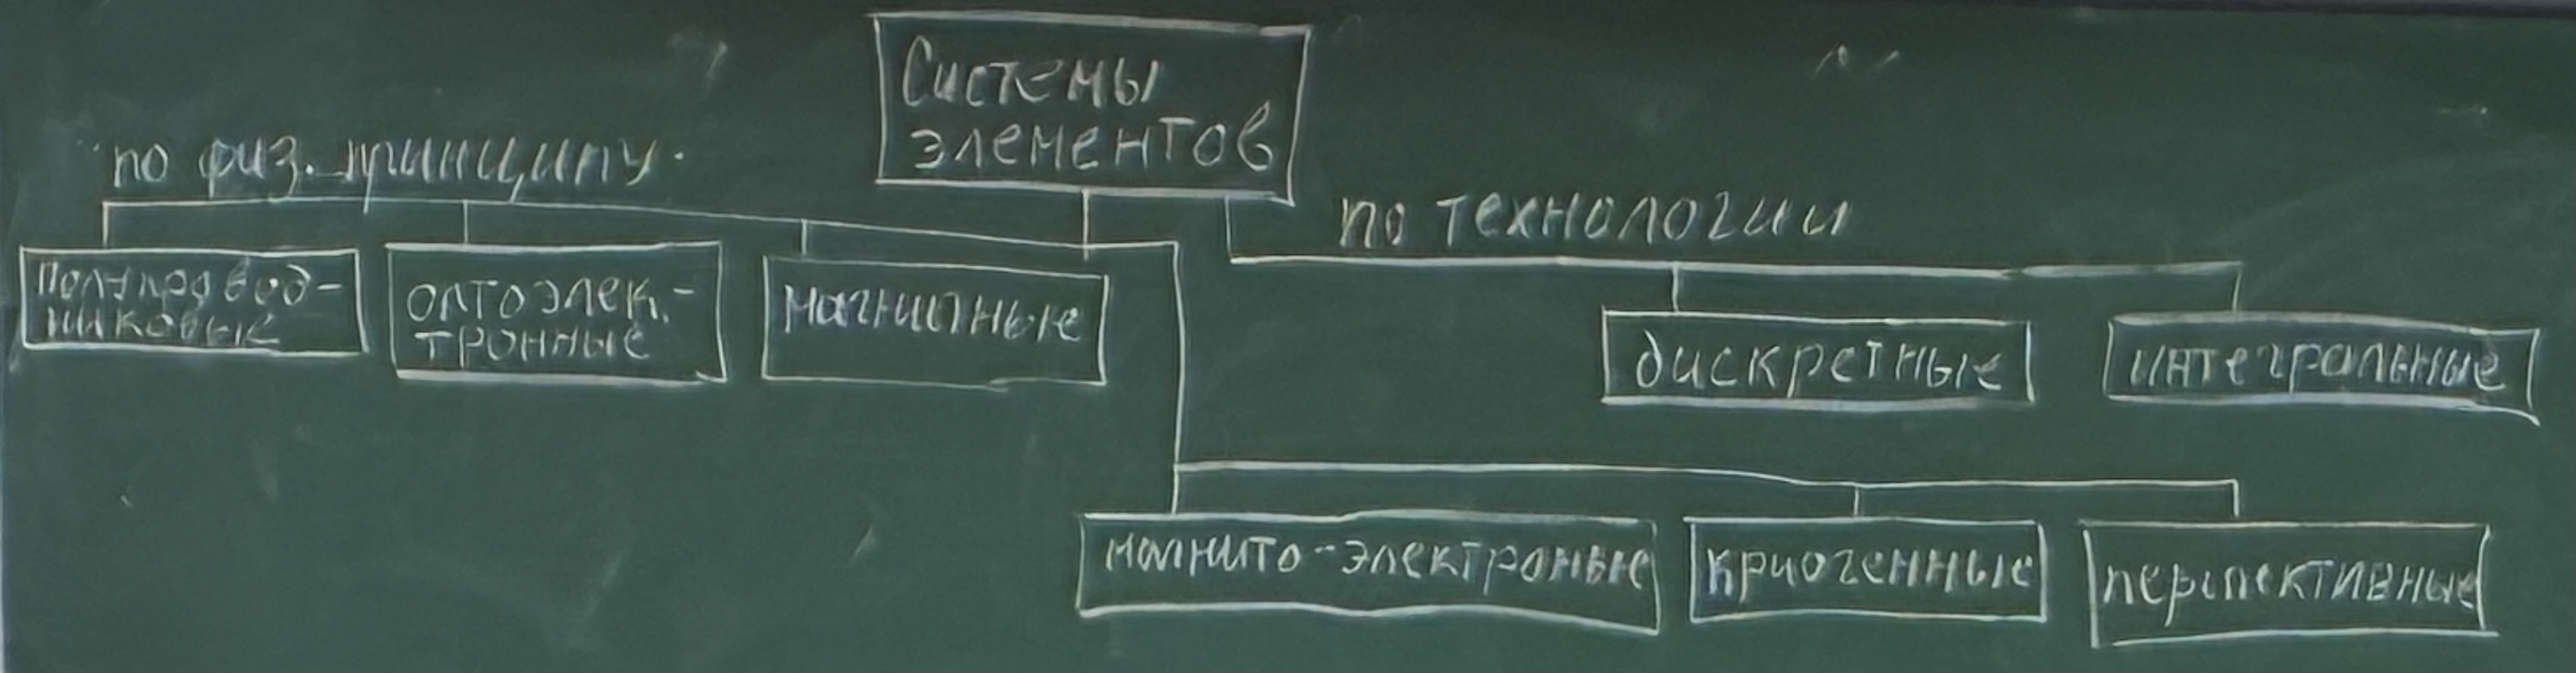 Системы
элементов
по физ. принципу.
по технологии
полупровод-
никовые
оптоэлек-
тронные
магнитные
дискретные
интегральные
магнито-электроные
криогенные
перспективные